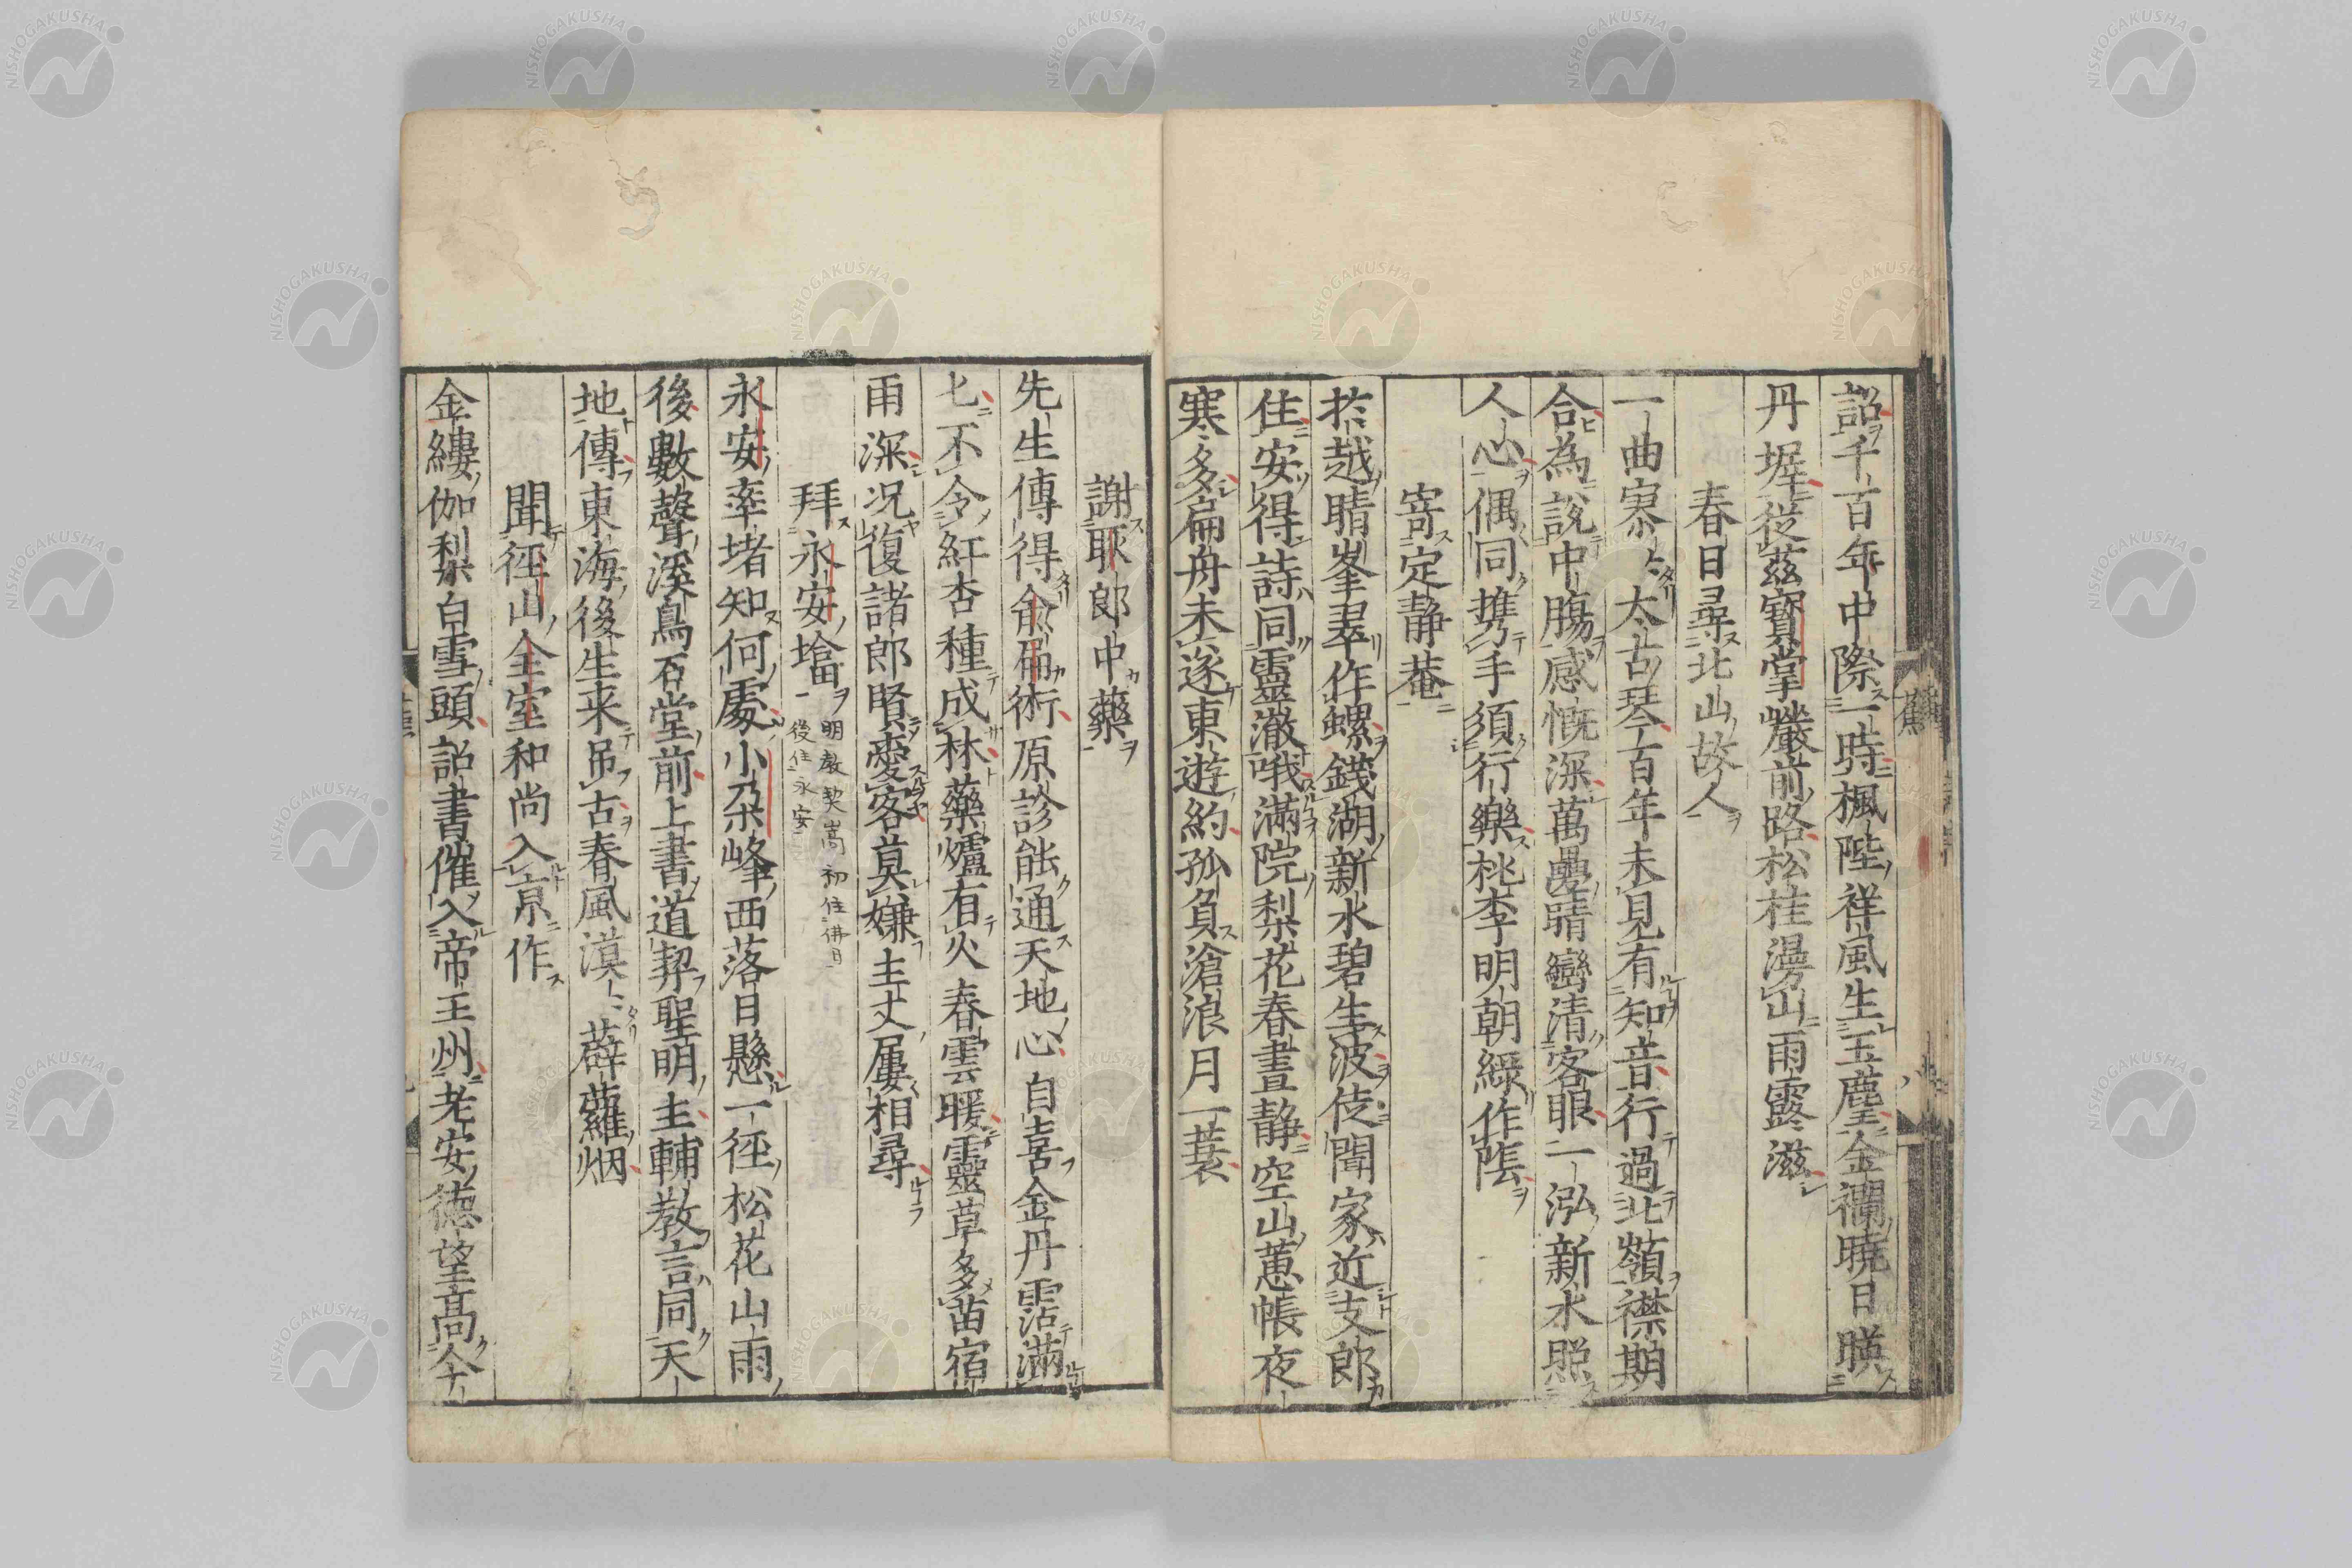 詔千百年中際一時楓陛祥風生玉塵金襴曉日暎
丹墀從茲寶掌巖前路松桂漫山雨露滋
春日尋北山故人
一曲寥〻太古琴百年未見有知音行過北嶺襟期
合為說中膓感慨深萬疊晴巒清客眼一泓新水照
人心偶同携手須行樂桃李明朝緑作陰
寄定靜菴
於越晴峯翠作螺錢湖新水碧生波伎聞家近支郎
住安得詩同靈澈哦滿院梨花春晝静空山蕙帳夜
寒多扁舟未遂東遊約孤負滄浪月一蓑
謝耿郎中藥
先生傳得俞扁術原診能通天地心自喜金丹霑滿
匕不令紅杏種成林藥爐有火春雲暖靈草多苗宿
雨深况復諸郎賢愛客莫嫌主丈屢相尋
拜永安塔
明敎契嵩初住佛日
後住永安
永安窣堵知何處小朶峰西落日懸一徑松花山雨
後數聲溪鳥石堂前上書道契聖明主輔敎言同天
地傳東海後生来吊古春風漠〻薜蘿烟
聞徑山全室和尚入京作
金縷伽梨白雪頭詔書催入帝王州老安德望高今
NISHOGAKUSHA